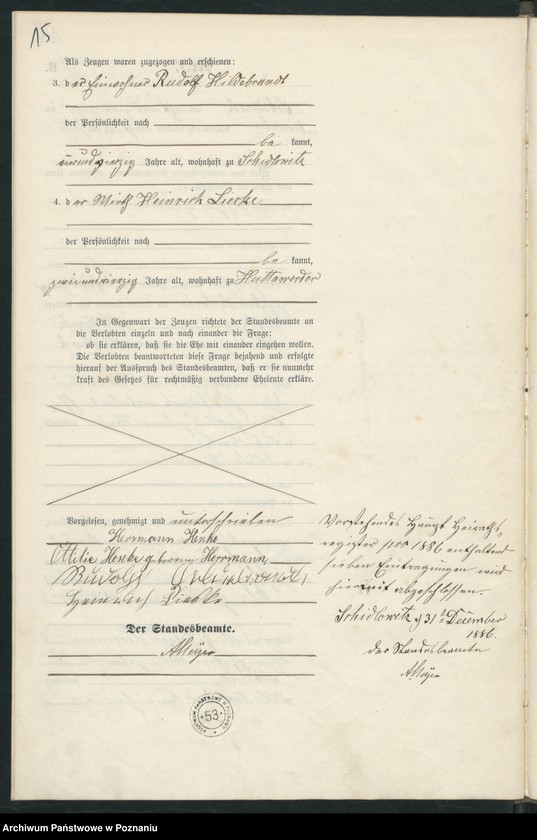 15
Als Zeugen waren zugezogen und erschienen:
3. der Einwohner Rudolf Hildebrandt
der Persönlichkeit nach
be kannt,
vierundvierzig Jahre alt, wohnhaft zu Schidlowitz
4. der Wirth Heinrich Lieske
der Persönlichkeit nach
be kannt,
zweiundvierzig Jahre alt, wohnhaft zu Huttawerder
In Gegenwart der Zeugen richtete der Standesbeamte an
die Verlobten einzeln und nach einander die Frage:
ob sie erklären, daß sie die Ehe mit einander eingehen wollen.
Die Verlobten beantworteten diese Frage bejahend und erfolgte
hierauf der Ausspruch des Standesbeamten, daß er sie nunmehr
kraft des Gesetzes für rechtmäßig verbundene Eheleute erkläre.
Vorgelesen, genehmigt und unterschrieben
Hermann Henke
Ottilie Henke geborene Herrmann
Rudolf Hildebrandt
Heinrich Lieske
Der Standesbeamte.
Vorstehendes Haupt Heiraths-
register pro 1886 enthaltend
sieben Eintragungen wird
hiermit abgeschlossen.
Schidlowitz, d 31 December
1886.
Der Standesbeamte
ARCHIWUM PAŃSTWOWE W POZNANIU
53
Archiwum Państwowe w Poznaniu